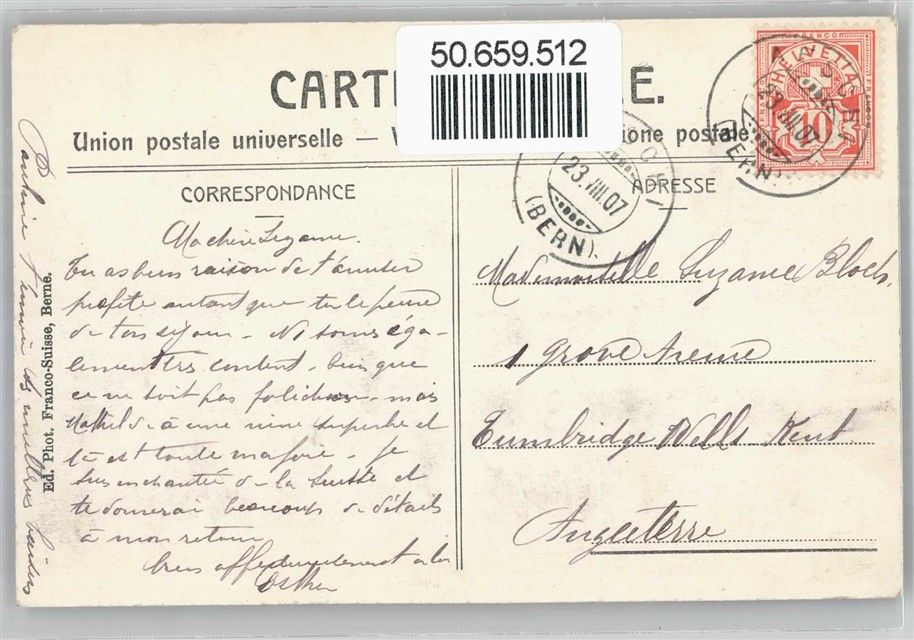 50.659.512
CARTE.
Union postale universelle — ione postale
CORRESPONDANCE
ADRESSE
Ma chère Suzanne.
Tu as bien raison de t'amuser
profite autant que tu le peux
de ton séjour. Ns sommes éga-
lement très content, bien que
ce ne soit pas folichon mais
Mathilde a une mine superbe et
là est toute ma joie. Je
suis enchantée de la Suisse et
te donnerai beaucoup de détails
à mon retour
bien affectueusement à toi
Esther
Mademoiselle Suzanne Bloch.
1 Grove Avenue
Tumbridge Wells. Kent
Angleterre
Ed. Phot. Franco-Suisse, Berne.
HELVETIA
FRANCO
10
23.VIII.07
(BERN)
23.VIII.07
(BERN).